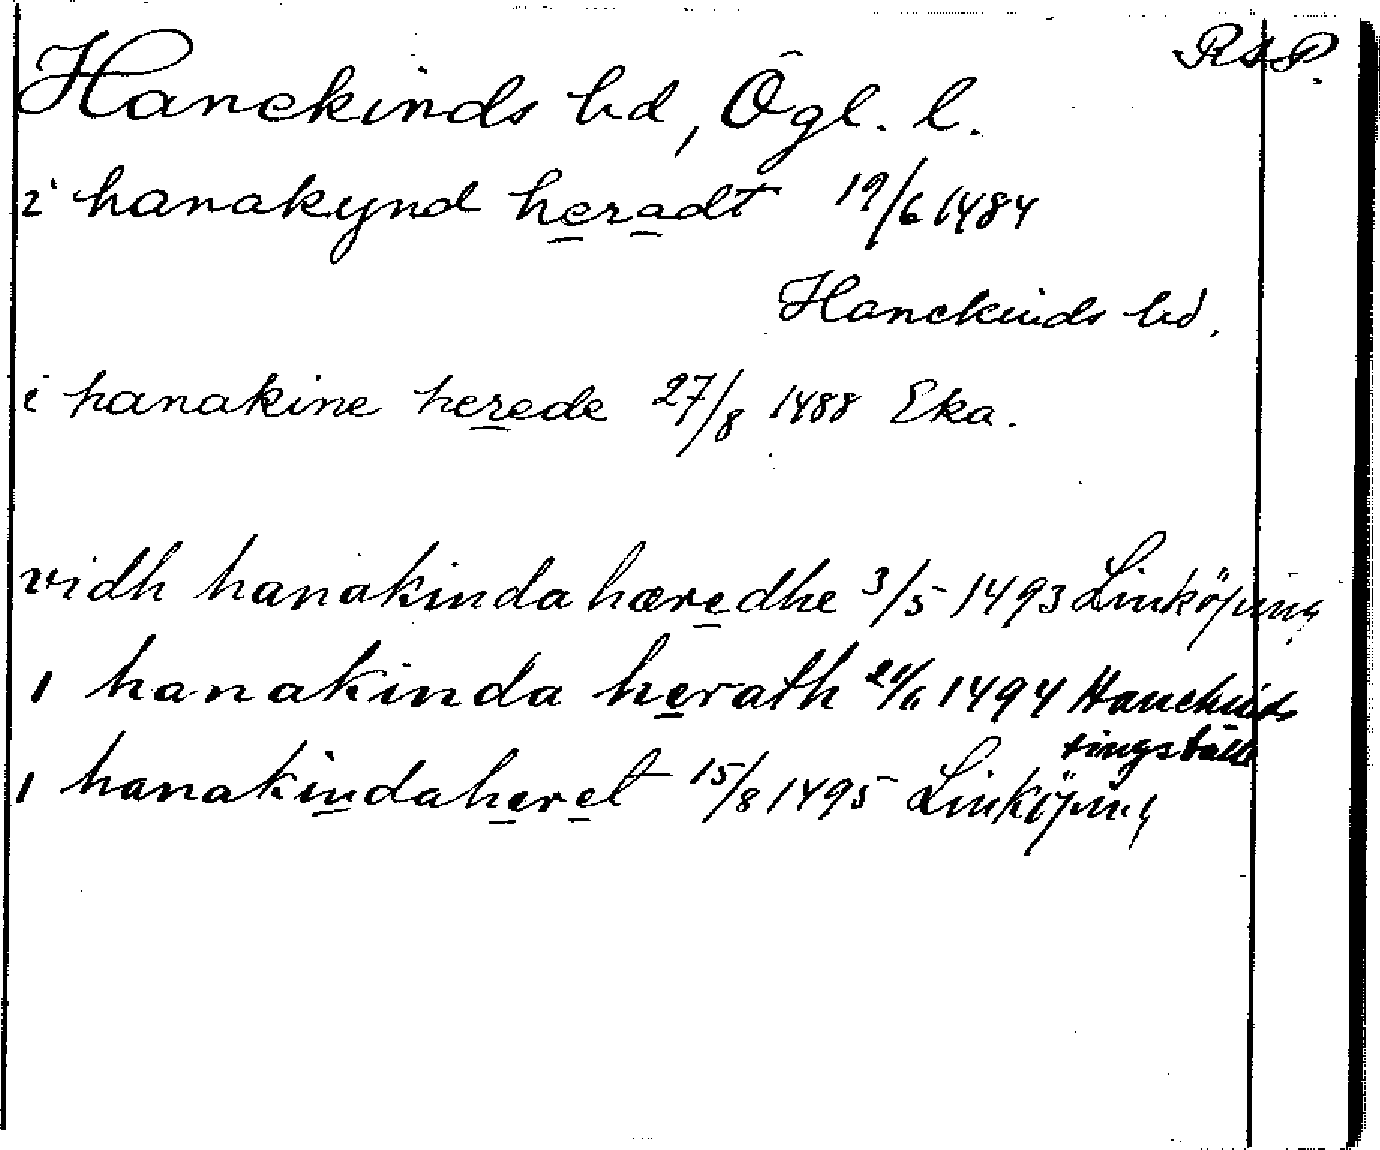 RAP.
Hanekinds hd, Ögl. l.
i hanakynd heradt 19/6 1484
Hanekinds hd.
i hanakine herede 27/8 1488 Eka.
vidh hanakinda hæredhe 3/5 1493 Linköping
i hanakinda herath 1494 Hanekinds
tingställe
i hanakindaheret 15/8 1495 Linköping